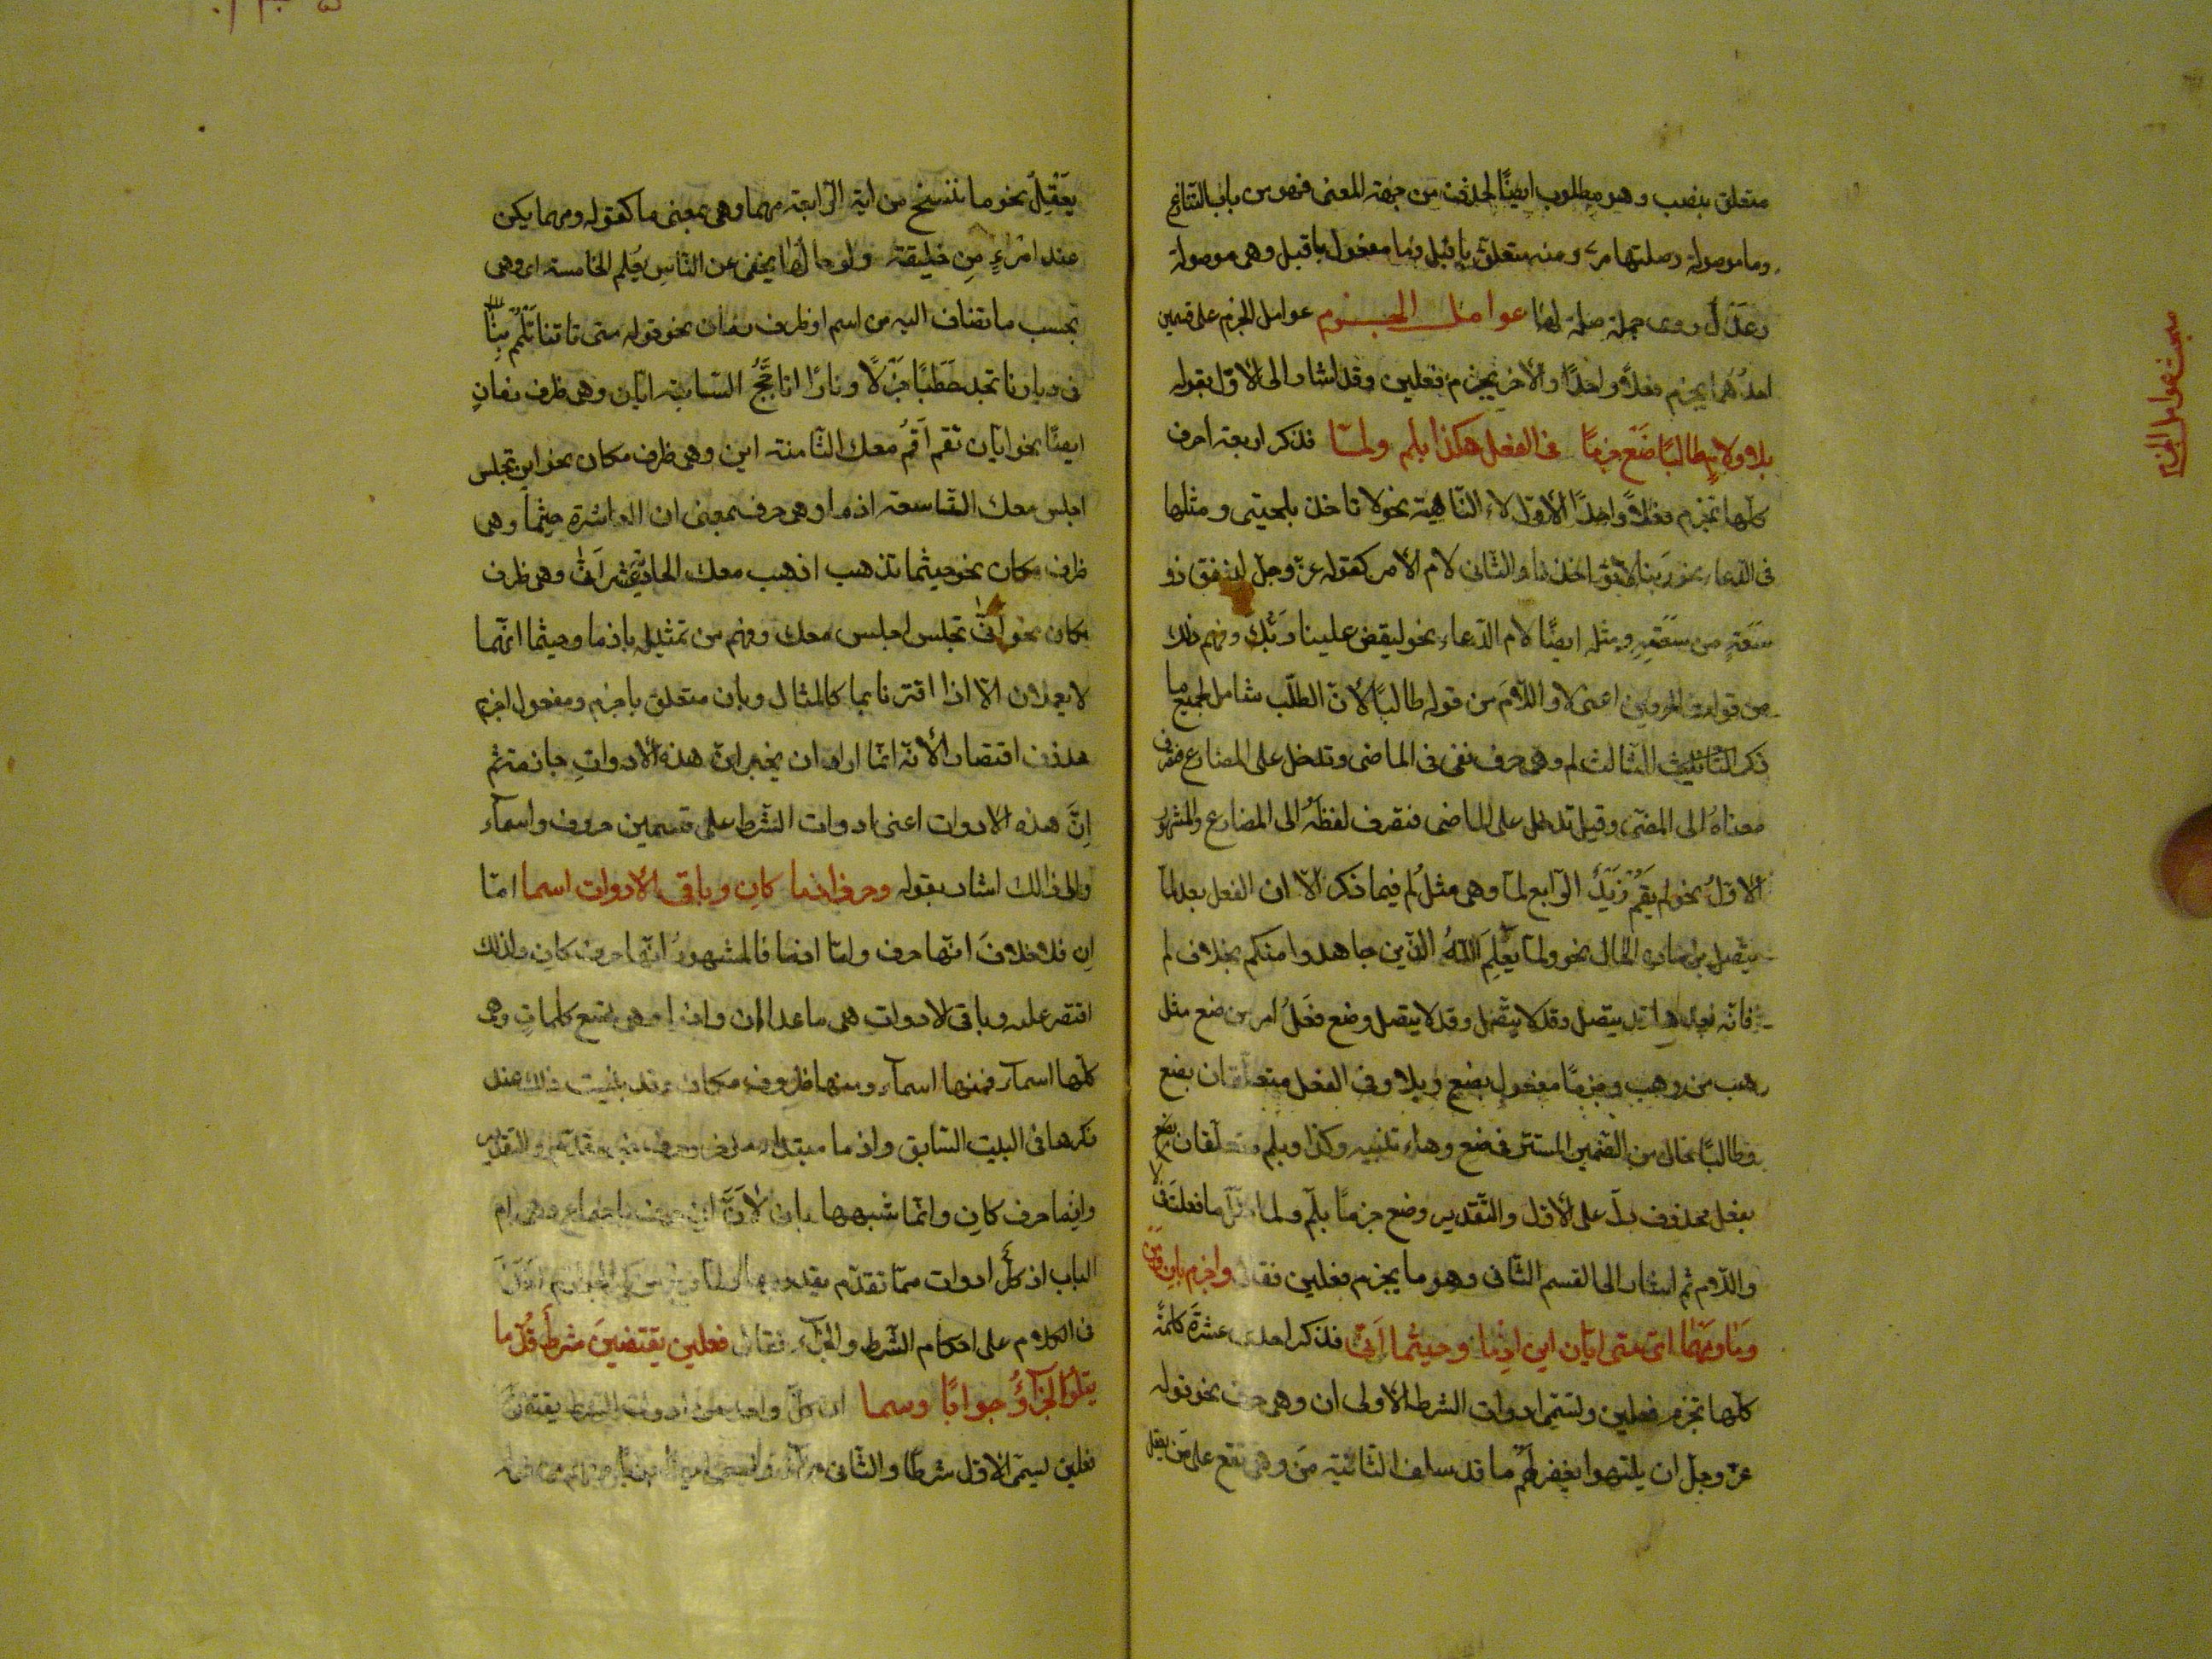 متعلق بنصب وهو مطلوب ايضًا لحذف من جهة المعنى فهو من باب التنازع
وما موصولة وصلتها مر ومنه متعلق باقبل وما مفعول باقبل وهى موصولة
وعدل روى جملة صلة لها عوامل الجزم عوامل الجزم على قسمين
احدهما يجزم فعلًا واحدًا والآخر يجزم فعلين وقد اشار الى الاوّل بقوله
بلا ولام طالبًا ضَع جزمًا فى الفعل هكذا بلم ولمّا فذكر اربعة أحرف
كلّها تجزم فعلًا واحدًا الاوّل لاء النّاهية نحو لا تاخذ بلحيتى ومثلها
فى الدّعاء نحو ربّنا لا تؤاخذنا والثّانى لام الامر كقوله عزّ وجلّ لينفق ذو
سَعَةٍ من سَعَتِهِ ومثله ايضًا لام الدّعاء نحو ليقض علينا ربّك وفهم ذلك
من قوله الحرفين اعنى لا واللّام من قوله طالبًا لأنّ الطلب شامل لجميع ما
ذكر الثّالث لم وهى حرف نفى فى الماضى وتدخل على المضارع فتصرف
معناهُ الى المضىّ وقيل تدخل على الماضى فتصرف لفظهُ الى المضارع والمشهور
الاوّلُ نحو لم يَقُمْ زَيْدٌ الرّابع لمّا وهى مثلُ لم فيما ذكر الّا ان الفعل بعد لمّا
يتّصل بزمان الحال نحو ولمّا يَعْلَمِ اللّٰهُ الّذين جاهدوا منكم بخلاف لم
فانّه قد يتّصل وقد لا يتّصل وضع فعلُ امر من ضع مثل
هب من وهب وجزمًا مفعول بضع وبلا وفى الفعل متعلّقان بضع
وطالبًا حال من الضّمير المستتر فى ضع وهاء تنبيه وكذا وبلم متعلّقان بضع
بفعل محذوف دلّ على الاوّل والتّقدير وضع جزمًا بلم ولما مثل ما فعلتَ فى لا
واللّام ثم اشار الى القسم الثّانى وهو ما يجزم فعلين فقال واجزم بإن ومَن
وما ومهما اىّ متى ايّان اين اذما وحيثما أنّى فذكر احدى عشرةَ كلمةً
كلّها تجزم فعلين وتسمّى ادوات الشرط الاولى ان وهى حرف نحو قوله
عزّ وجلّ ان ينتهوا يغفر لهم ما قد سلف الثّانية مَن وهى تقع على من يعقل
مبحث عوامل الجزم
يَعْقِلُ نحو ما ننسخ من اية الرّابعة مهما وهى بمعنى ما كقوله ومهما يكن
عند امرءٍ مِن خليقةٍ ولو خالها تخفى عن النّاسِ تُعلمِ الخامسة اى وهى
بحسب ما تضاف اليه من اسم او ظرف نحو قوله متى تاتنا تُلْمِمْ بِنَا
فى ديارنا تجد حَطَبًا جَزْلًا ونارًا تاجّجُ السّابعة ايّان وهى ظرف زمانٍ
ايضًا نحو ايّان تقم أقُمْ معك الثّامنة اين وهى ظرف مكان نحو اين تجلس
اجلس معك التّاسعة اذما وهى حرف بمعنى ان العاشرة حيثما وهى
ظرف مكان نحو حيثما تذهب اذهب معك الحادية عشر أنّى وهى ظرف
مكان نحو أنّى تجلس اجلس معك وفهم من تمثيله باذما وحيثما انّهما
لا يعملان الّا اذا اقترنا بما كالمثال وبإن متعلق باجزم ومفعول اجزم
حذف اقتصارًا لأنّه انّما اراد ان يخبر انّ هذه الأدواتِ جازمة ثم
إنّ هذه الادوات اعنى ادوات الشّرط على قسمين حروف واسمآء
والى ذالك اشار بقوله وحرف اذما كإن وباقى الأدوات اسما امّا
إن فلا خلافَ انّها حرف وامّا اذما فالمشهور انّها حرف كإن ولذلك
اقتصر عليه وباقى الادوات هى ما عدا إن واذما وهى تسع كلمات وهى
كلّها اسمآء فمنها اسمآء ومنها ظروف مكان وقد بيّنت ذلك عند
ذكرها فى البيت السّابق واذ ما مبتدا وحرف خبر مقدّم والتقدير
واذما حرف كإن وانّما شبهها بإن لأنّ إن حرف باجماع وهى ام
الباب اذ كلُّ ادوات ممّا تقدّم
فى الكلام على احكام الشّرط والجزآء فقال فعلين يقتضينَ شرطٌ قُدّما
يتلوا الجزآءُ وجوابًا وسما ان كلّ واحد من ادوات الشرط يقتضى
فعلين يسمّى الاوّل شرطًا والثّانى جزآء ويسمّى ايضًا جوابًا